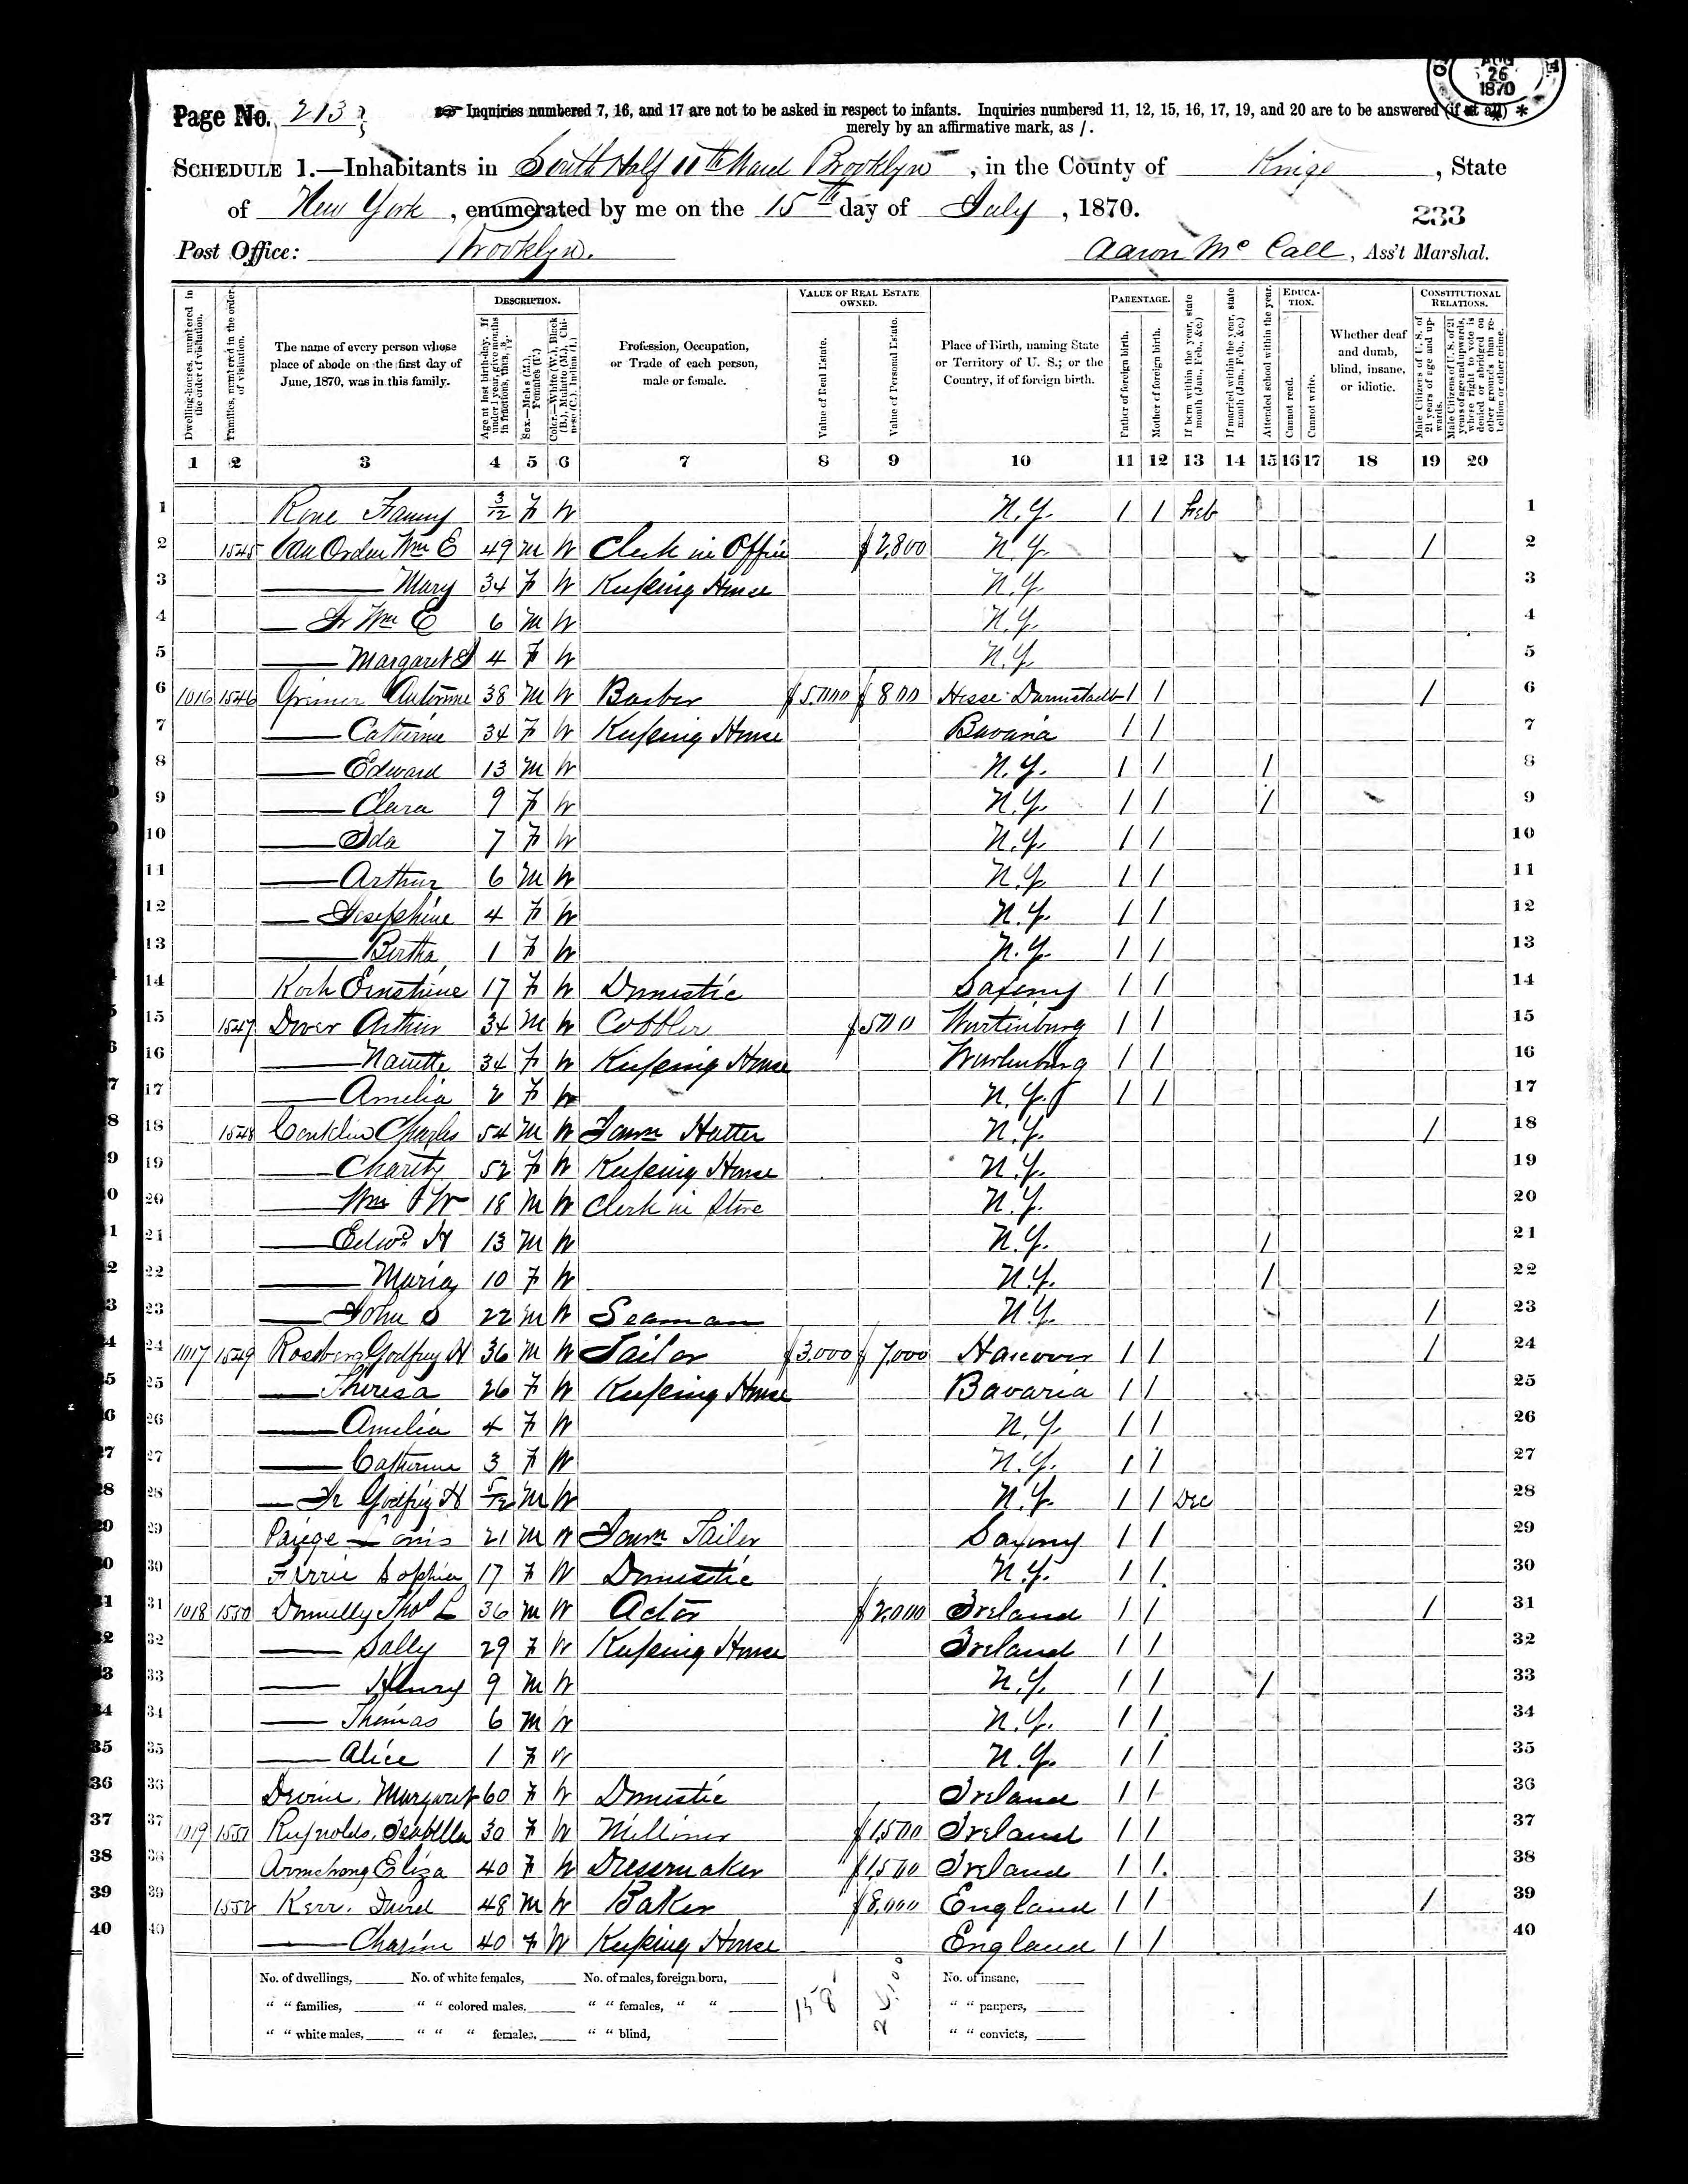 AUG
26
1870
Page No. 213
Inquiries numbered 7, 16, and 17 are not to be asked in respect to infants. Inquiries numbered 11, 12, 15, 16, 17, 19, and 20 are to be answered (if at all)
merely by an affirmative mark, as /.
SCHEDULE 1.—Inhabitants in South Half 11th Ward Brooklyn, in the County of Kings, State
of New York, enumerated by me on the 15th day of July, 1870.
233
Post Office: Brooklyn. Aaron McCall, Ass't Marshal.
Dwelling-houses, numbered in the order of visitation.
Families, numbered in the order of visitation.
The name of every person whose place of abode on the first day of June, 1870, was in this family.
DESCRIPTION.
Age at last birth-day. If under 1 year, give months in fractions, thus, 3/12.
Sex.—Males (M.), Females (F.)
Color.—White (W.), Black (B.), Mulatto (M.), Chinese (C.), Indian (I.)
Profession, Occupation, or Trade of each person, male or female.
VALUE OF REAL ESTATE OWNED.
Value of Real Estate.
Value of Personal Estate.
Place of Birth, naming State or Territory of U. S.; or the Country, if of foreign birth.
PARENTAGE.
Father of foreign birth.
Mother of foreign birth.
If born within the year, state month (Jan., Feb., &c.)
If married within the year, state month (Jan., Feb., &c.)
EDUCATION.
Attended school within the year.
Cannot read.
Cannot write.
Whether deaf and dumb, blind, insane, or idiotic.
CONSTITUTIONAL RELATIONS.
Male Citizens of U. S. of 21 years of age and upwards.
Male Citizens of U. S. of 21 years of age and upwards, where right to vote is denied or abridged on other grounds than rebellion or other crime.
1 2 3 4 5 6 7 8 9 10 11 12 13 14 15 16 17 18 19 20
1 Fanny 3/12 F W N.Y. / / Feb 1
2 1545 Van Orden Wm E 49 M W Clerk in Office $2,800 N.Y. / 2
3 — Mary 34 F W Keeping House N.Y. 3
4 — Jr Wm E 6 M W N.Y. 4
5 — Margaret 4 F W N.Y. 5
6 1016 1546 38 M W Barber $5,000 $800 Hesse Darmstadt / / / 6
7 — Catherine 34 F W Keeping House Bavaria / / 7
8 — Edward 13 M W N.Y. / / / 8
9 — Clara 9 F W N.Y. / / / 9
10 — Ida 7 F W N.Y. / / 10
11 — Arthur 6 M W N.Y. / / 11
12 — Josephine 4 F W N.Y. / / 12
13 — Bertha 1 F W N.Y. / / 13
14 Koch Ernstine 17 F W Domestic Saxony / / 14
15 1547 Dover Arthur 34 M W Cobbler $500 Wurtinburg / / 15
16 — Nanette 34 F W Keeping House Wurtenburg / / 16
17 — Amelia 2 F W N.Y. / / 17
18 1548 Conklin Charles 54 M W Journ Hatter N.Y. / 18
19 — Charity 52 F W Keeping House N.Y. 19
20 — Wm W 18 M W Clerk in Store N.Y. 20
21 — Edwd H 13 M W N.Y. / 21
22 — Maria 10 F W N.Y. / 22
23 — John S 22 M W Seaman N.Y. / 23
24 1017 1549 Godfrey H 36 M W Tailor $3,000 $7,000 Hanover / / / 24
25 — Theresa 26 F W Keeping House Bavaria / / 25
26 — Amelia 4 F W N.Y. / / 26
27 — Catherine 3 F W N.Y. / / 27
28 — Jr Godfrey H 5/12 M W N.Y. / / Dec 28
29 Louis 21 M W Journ Tailor Saxony / / 29
30 Ferrie Sophia 17 F W Domestic N.Y. / / 30
31 1018 1550 Donnelly Thos L 36 M W Actor $2,000 Ireland / / / 31
32 — Sally 29 F W Keeping House Ireland / / 32
33 — Henry 9 M W N.Y. / / / 33
34 — Thomas 6 M W N.Y. / / 34
35 — Alice 1 F W N.Y. / / 35
36 Devine, Margaret 60 F W Domestic Ireland / / 36
37 1019 1551 Reynolds, Isabella 30 F W Milliner $1,500 Ireland / / 37
38 Armstrong Eliza 40 F W Dressmaker $1,500 Ireland / / 38
39 1552 Kerr, David 48 M W Baker $8,000 England / / / 39
40 — 40 F W Keeping House England / / 40
No. of dwellings, No. of white females, No. of males, foreign born, No. of insane,
" " families, " " colored males, " " females, " " " " paupers,
" " white males, " " " females, " " blind, " " convicts,